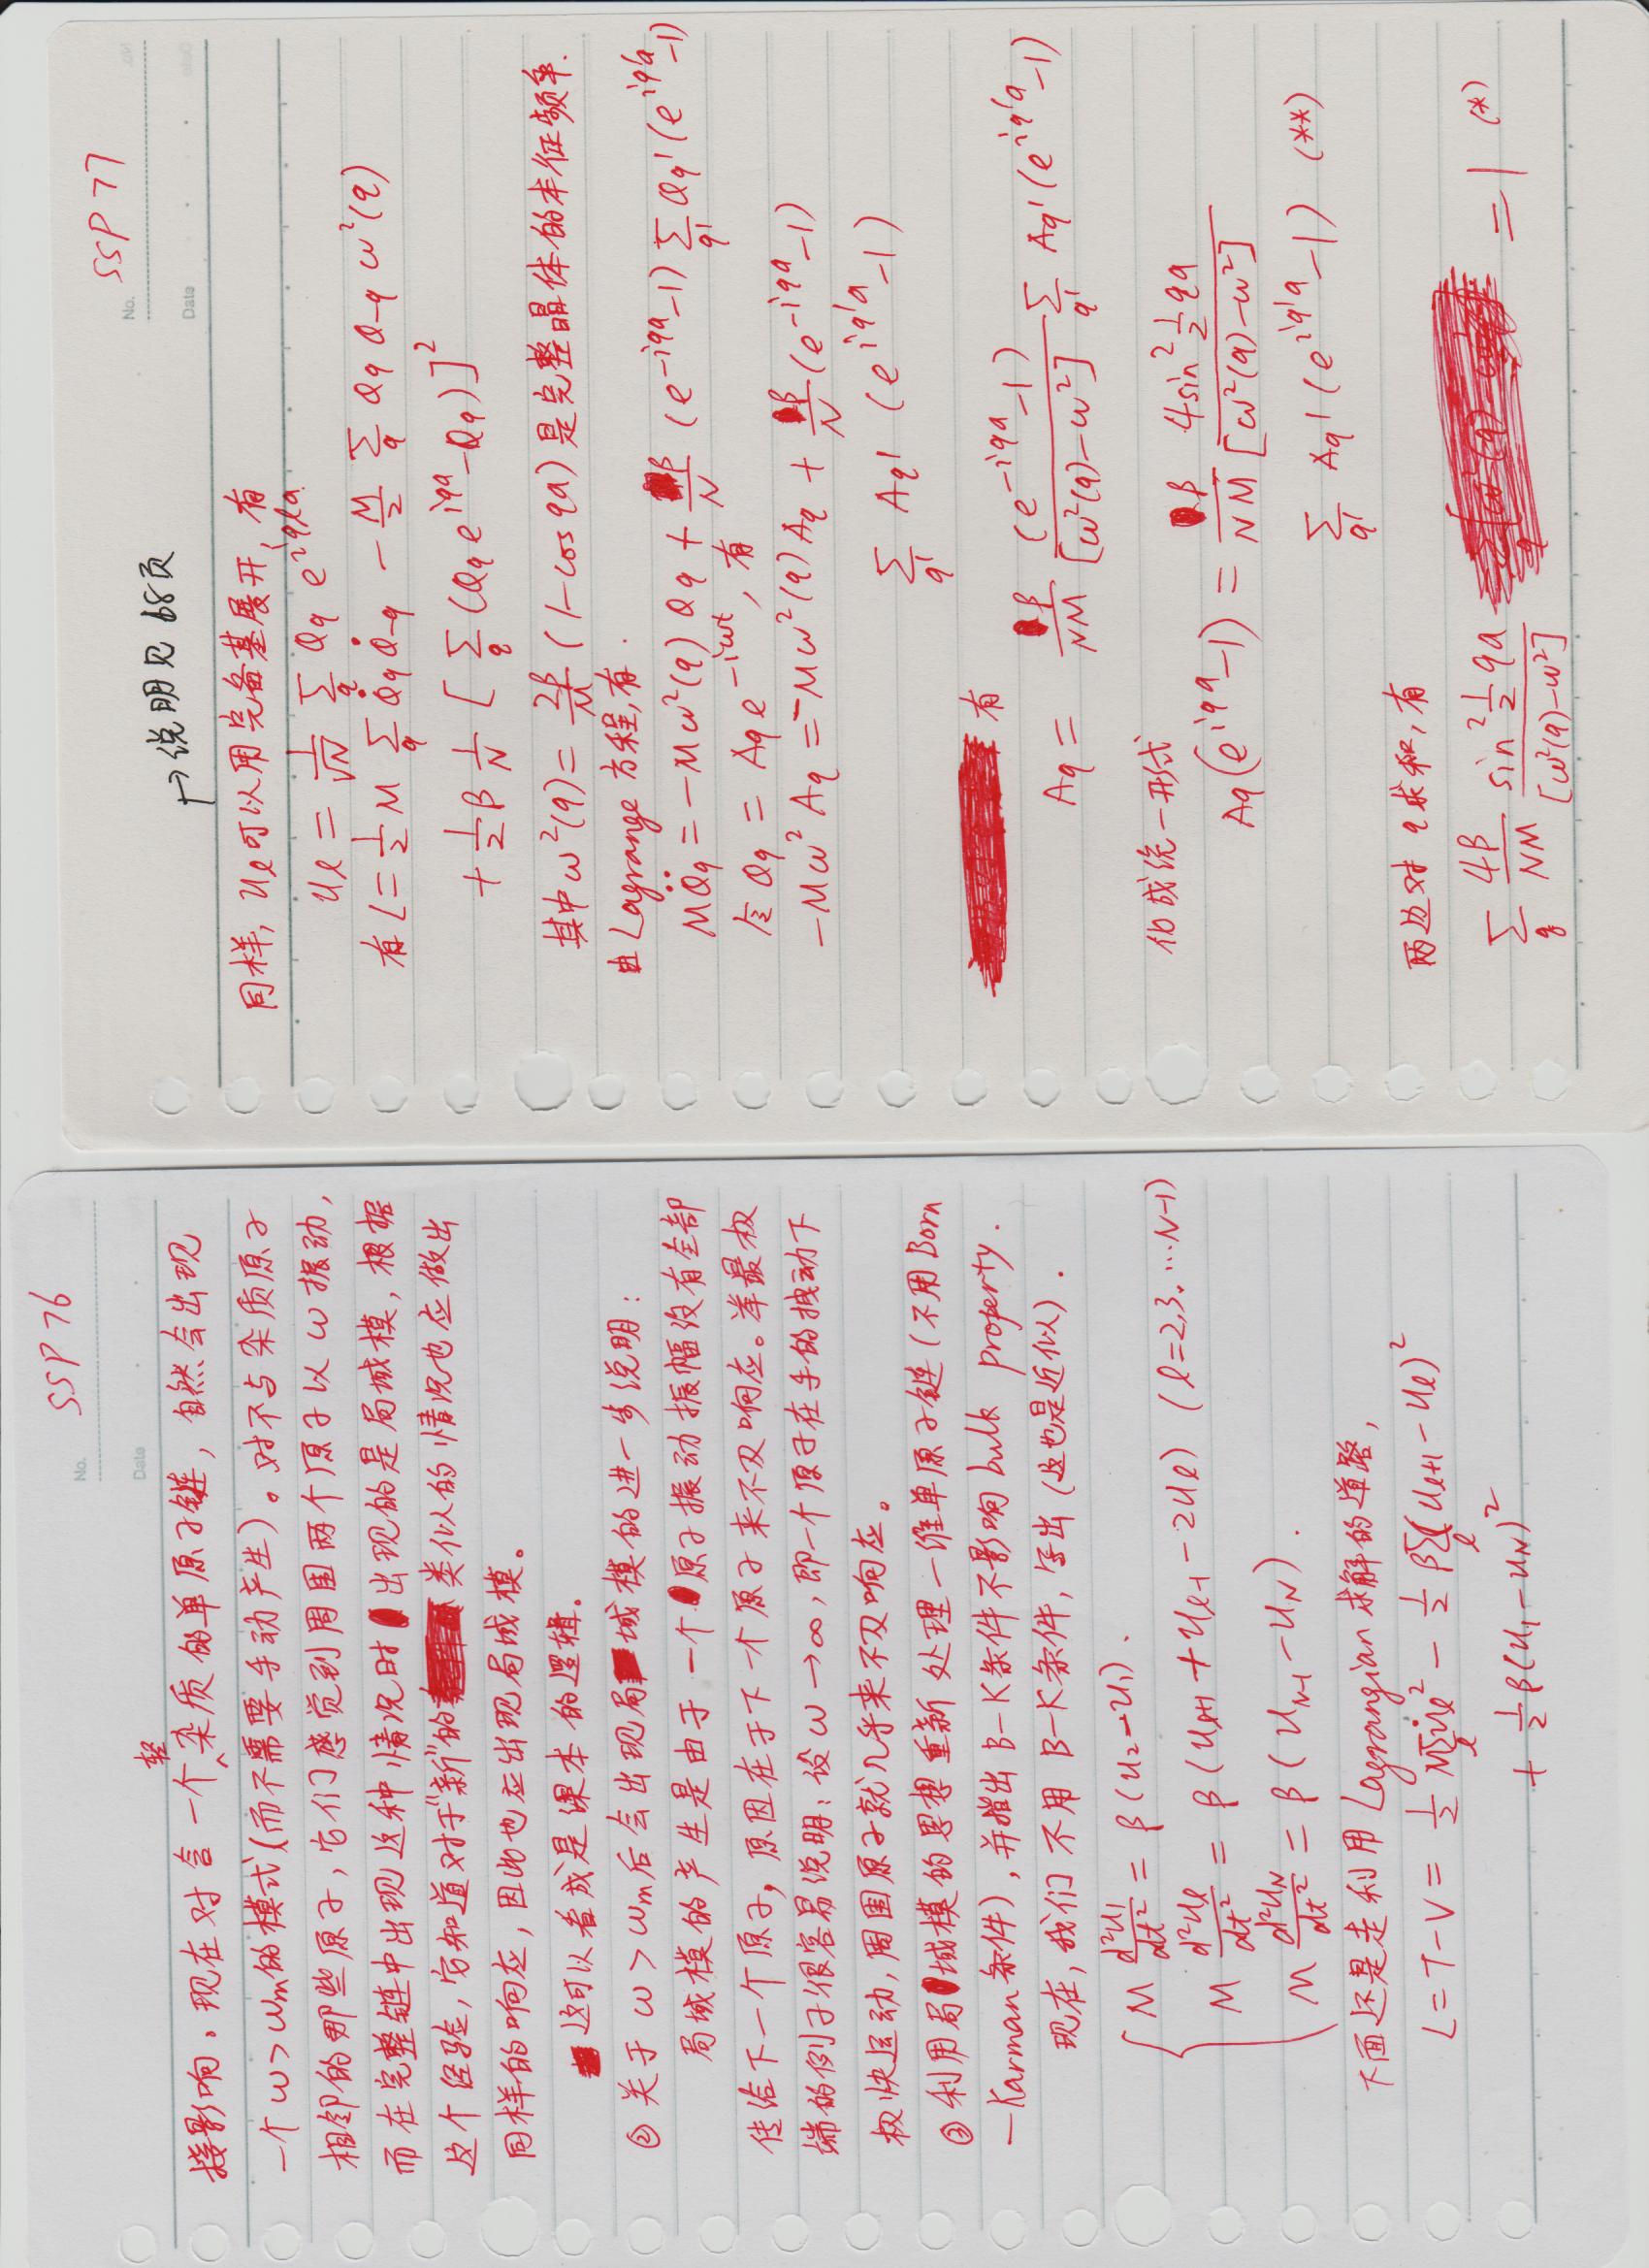 SSP 76
No.
Date
接影响。现在对含一个轻杂质的单原子链，自然会出现
一个ω>ωm的模式(而不需要手动产生)。对不与杂质原子
相邻的那些原子，它们感觉到周围两个原子以ω振动，
而在完整链中出现这种情况时出现的是局域模，根据
这个经验，它知道对于"新"的类似的情况也应做出
同样的响应，因此也应出现局域模。
这可以看成是课本的逻辑。
② 关于ω>ωm后会出现局域模的进一步说明：
局域模的产生是由于一个原子振动振幅没有全部
传给下一个原子，原因在于下一个原子来不及响应。举最极
端的例子很容易说明：设ω→∞，即一个原子在手的拽动下
极快运动，周围原子就几乎来不及响应。
③ 利用局域模的思想重新处理一维单原子链(不用Born
-Karman条件)，并指出B-K条件不影响bulk property.
现在，我们不用B-K条件，写出(这也是近似).
M d²u₁/dt² = β(u₂-u₁).
M d²uℓ/dt² = β(uℓ+1 + uℓ-1 - 2uℓ) (ℓ=2,3,…N-1)
M d²uN/dt² = β(uN-1 - uN).
下面还是走利用Lagrangian求解的道路，
L=T-V= 1/2 M∑ℓ u̇ℓ² - 1/2 β∑ℓ(uℓ+1 - uℓ)²
+ 1/2 β(u₁-uN)²
SSP 77
No.
Date
→说明见68页
同样，uℓ可以用完备基展开，有
uℓ = 1/√N ∑q Qq e^{iqℓa}
有L= 1/2 M ∑q Q̇q Q̇-q - M/2 ∑q Qq Q-q ω²(q)
+ 1/2 β 1/N [∑q (Qq e^{iqa} - Qq)]²
其中ω²(q)= 2β/M (1-cos qa)是完整晶体的本征频率.
由Lagrange方程，有.
MQ̈q = -Mω²(q) Qq + β/N (e^{-iqa}-1) ∑q' Qq' (e^{iq'a}-1)
令Qq = Aq e^{-iωt}, 有
-Mω² Aq = -Mω²(q) Aq + β/N (e^{-iqa}-1)
∑q' Aq' (e^{iq'a}-1)
有
Aq = β/NM (e^{-iqa}-1)/[ω²(q)-ω²] ∑q' Aq' (e^{iq'a}-1)
化成统一形式
Aq(e^{iqa}-1) = β/NM 4sin² 1/2 qa/[ω²(q)-ω²]
∑q' Aq' (e^{iq'a}-1) (**)
两边对q求和，有
∑q 4β/NM sin² 1/2 qa/[ω²(q)-ω²] = 1 (*)